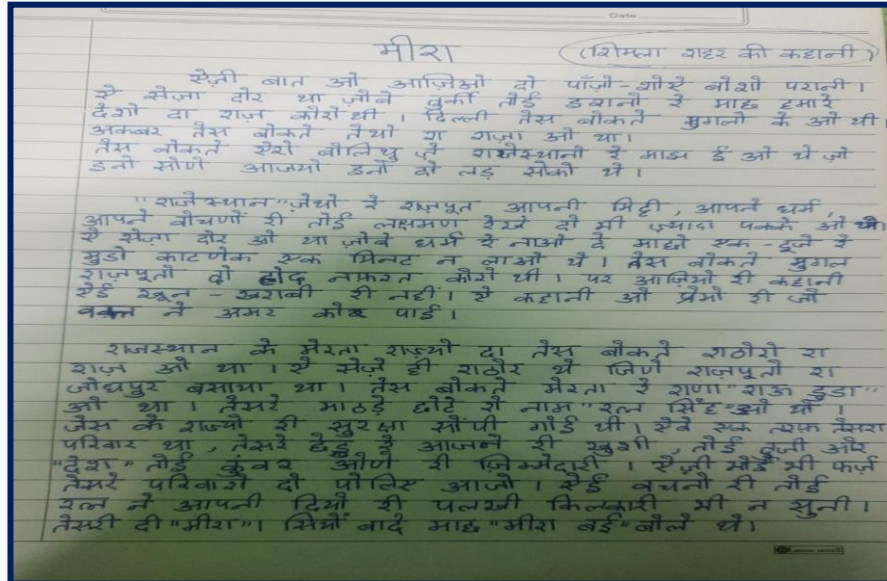 Date
मीरा (शिमला शहर की कहानी)
ऐज़ी बात ओ आज़िओ दो पाँज़ो-शोऐ बोशो परानी।
ऐ सेज़ा दोर था ज़ोबे तुर्की तोई डशनो रे माछ हमारे
देशो दा राज़ कोरो थी। दिल्ली तेस बोकते मुगलो के ओ थी।
अकबर तेस बोकते तेथो रा राज़ा ओ था।
तेस बोकते ऐशो बोलियु ज़े राजेस्थानो रे माझ ई ओ थे ज़ो
इनो सोणे आजयो इनो दो लड़ सोको थे।
"राजेस्थान" ज़ेथो रे राज़पूत आपनी मिट्टी, आपने धर्म,
आपने वोचणों री तोई लक्षमण रेखे दो भी ज़्यादा पक्के ओ थे।
ऐ सेज़ा दोर ओ था ज़ोबे धर्म रे नाओ दे माछे एक-दूजे रे
मुंडो काटणेक एक मिनट न लाओ थे। तेस बोकते मुगल
राज़पूतो दो होद नफ़रत कोरो थी। पर आज़ियो री कहानी
ऐई खून-खराबी री नहीं। ऐ कहानी ओ प्रेमो री जो
वक्त ने अमर कोर पाई।
राजस्थान के मेरता राज्यो दा तेस बोकते राठोरो रा
राज़ ओ था। ऐ सेज़े ही राठोर थे ज़िणे राज़पूतो रा
जोधपुर बसाया था। तेस बोकते मेरता रे राणा "राऊ डुडा"
ओ था। तेसरे माठड़े छोटे रो नाम "रत्न सिंह" ओ थो।
जेस के राज्यो री सुरक्षा सोंपी गोई थी। ऐबे एक तरफ तेसरा
परिवार था, तेसरे रे आजने री खुशी, तोई दूजी और
"देश" तोई कुंवर ओणे री ज़िम्मेदारी। ऐज़ी भी फर्ज़
तेसरे परिवारो दो पोलिए आजो। ऐई वचनो री तोई
रत्न ने आपनी दियो री पलखी किलकारी भी न सुनी।
तेसरी दी "मीरा"। सियों बादे माछ "मीरा बई" बोले थे।